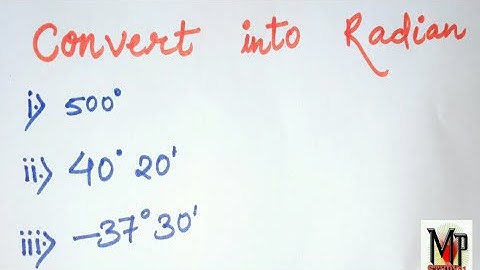 Convert into Radian
i.) 500°
ii.) 40° 20'
iii.) -37° 30'
MP